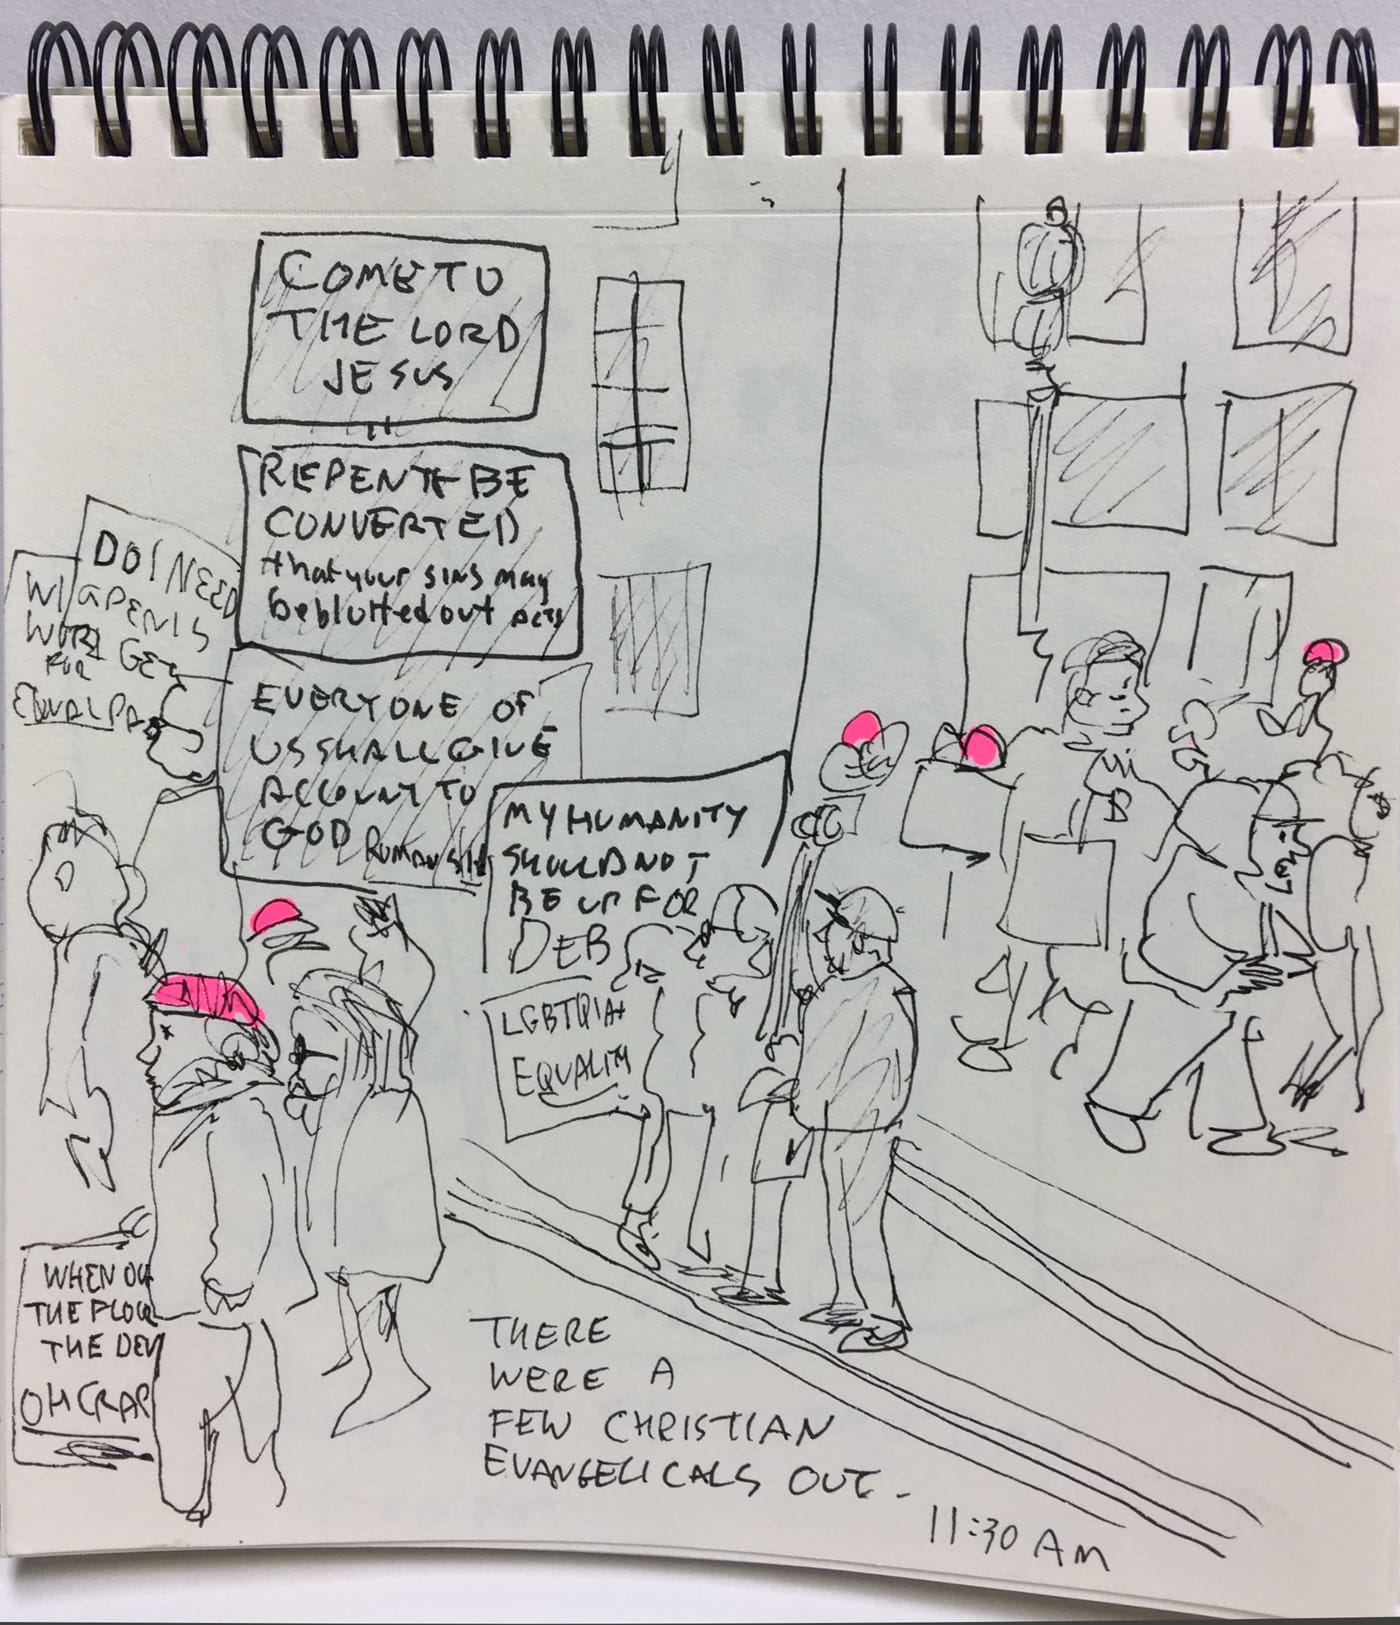 COME TO
THE LORD
JESUS
REPENT & BE
CONVERTED
that your sins may
be blotted out ACTS
DO I NEED
A PENIS
GET
WI
WORK
FOR
EQUAL PA
EVERYONE OF
US SHALL GIVE
ACCOUNT TO
GOD ROMANS 14
MY HUMANITY
SHOULD NOT
BE UP FOR
DEB
LGBTQIA+
EQUALITY
B
WHEN OU
THE FLOO
THE DEV
OH CRAP
THERE
WERE A
FEW CHRISTIAN
EVANGELICALS OUT.
11:30 AM